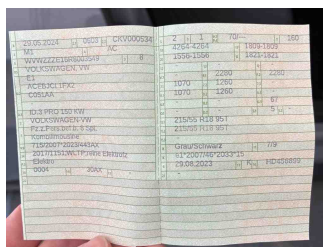 29.05.2024 0603 CKV000534
M1 AC
8
VOLKSWAGEN, VW
E1
ACEBJCL1FX2
C051AA
ID.3 PRO 150 KW
VOLKSWAGEN-VW
Fz.z.Pers.bef.b. 8 Spl.
Kombilimousine
715/2007*2023/443AX
Elektro
0004 30AX
2 1 70/-- 160
4264-4264 1809-1809
1556-1556 1821-1821
2280 2280
1070 1260
1070 1260
67
5
215/55 R18 95T
215/55 R18 95T
Grau/Schwarz 7/9
e1*2007/46*2033*15
29.08.2023 K HD456899
-